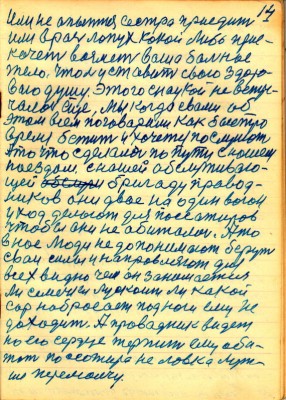 14
Или не опытня сестра приедит
или врач лопух какой либо прис-
качет возмет ваша больное
тело, чтоб уставить свою здоро-
вую душу. Этого наукой не
галос еще. Мы когда с вами об
этом всем поговарили как быстро
время бежит и хочетца послушат
А то что сделалос по пути с нашем
поездом, с нашей обслуживаю-
щей бригаду провод-
ников они двое на один вогон
и уход делают для поссажиров
чтобы они не абитилис. А то
вное люди не допонимают берут
сваи силы и направляют для
всех видно чем он занимается
Ли семечки лускот ли какой
сор набросает под ноги ему не
даходит. А провадник видет
но его сердце терпит ему оби-
тет поссажира не ловка луч-
ше перемолчу.